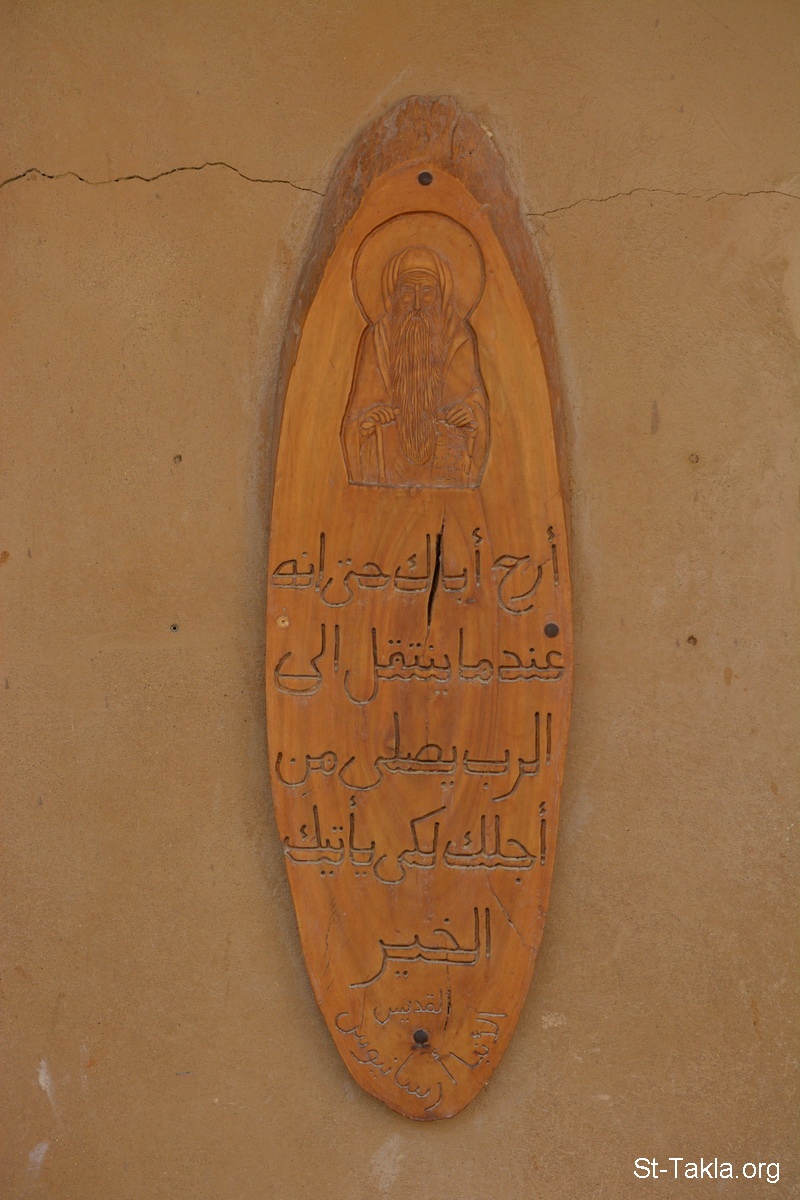 أرح أباك حتى إنه
عندما ينتقل الى
الرب يصلى من
أجلك لكى يأتيك
الخير
القديس
الأنبا أرسانيوس
St-Takla.org